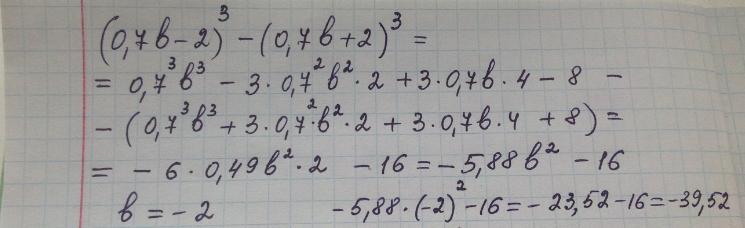 (0,7в-2)³ - (0,7в+2)³ =
= 0,7³в³ - 3·0,7²в²·2 + 3·0,7в·4 - 8 -
- (0,7³в³ + 3·0,7²·в²·2 + 3·0,7в·4 + 8) =
= - 6·0,49в²·2 - 16 = - 5,88в² - 16
в = - 2 - 5,88·(-2)² - 16 = - 23,52 - 16 = - 39,52